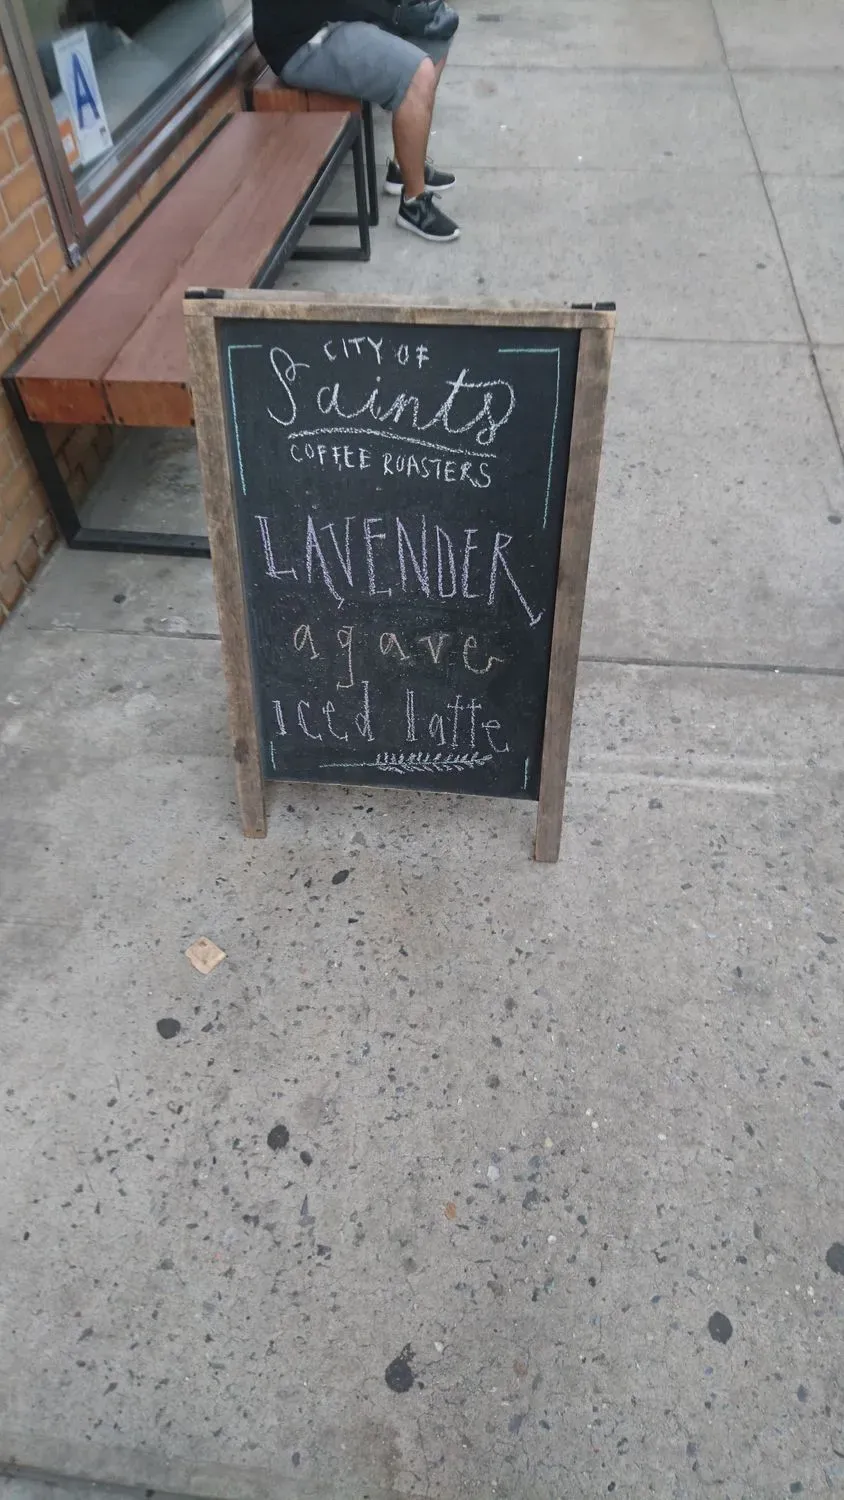 A
CITY OF
Saints
COFFEE ROASTERS
LAVENDER
agave
iced latte